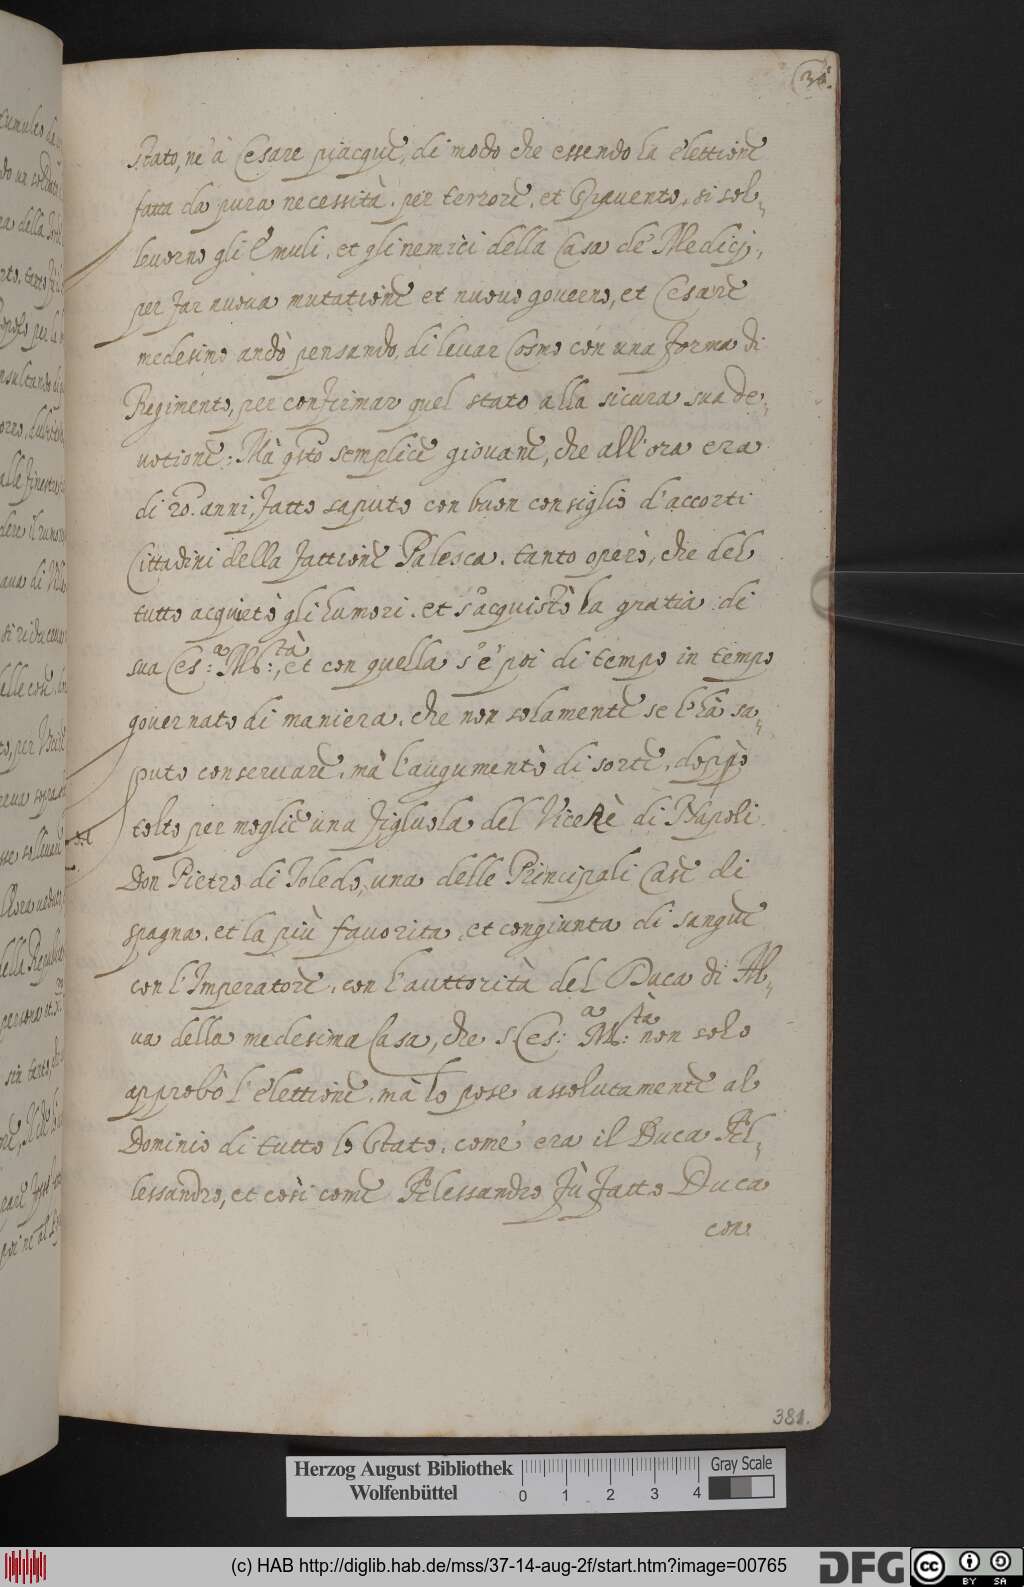 Stato, nè à Cesare piacque, di modo che essendo la elettione
fatta da pura necessità, per terrore, et spavento, si sol-
leuorno gli Emuli, et gli nemici della Casa de' Medicij,
per far nuoua mutatione et nuouo gouerno, et Cesare
medesimo andò pensando, di leuar Cosmo con una forma di
Regimento, per confirmar quel stato alla sicura sua de-
uotione: Mà qsto semplice giouane, che all'ora era
di 20. anni, fatto saputo con buon consiglio d'accorti
Cittadini della fattione Palesca, tanto operò, che del
tutto acquietò gli humori, et s'acquistò la gratia di
sua Ces:a M:tà, et con quella s'è poi di tempo in tempo
gouernato di maniera, che non solamente se l'hà sa-
puto conseruare, mà l'augumentò di sorte, doppò
tolto per moglie una figluola del ViceRè di Napoli
Don Pietro di Toledo, una delle Principali Case di
spagna, et la più fauorita, et congiunta di sangue
con l'Imperatore, con l'auttorità del Duca di Al-
ua della medesima Casa, che S. Ces:a M:tà non solo
approbò l'elettione, mà lo pose assolutamente al
Dominio di tutto lo Stato, come era il Duca Al-
lessandro, et così come Alessandro fù fatto Duca
con
381.
Herzog August Bibliothek
Wolfenbüttel
0 1 2 3 4
Gray Scale
(c) HAB http://diglib.hab.de/mss/37-14-aug-2f/start.htm?image=00765
DFG
cc BY SA